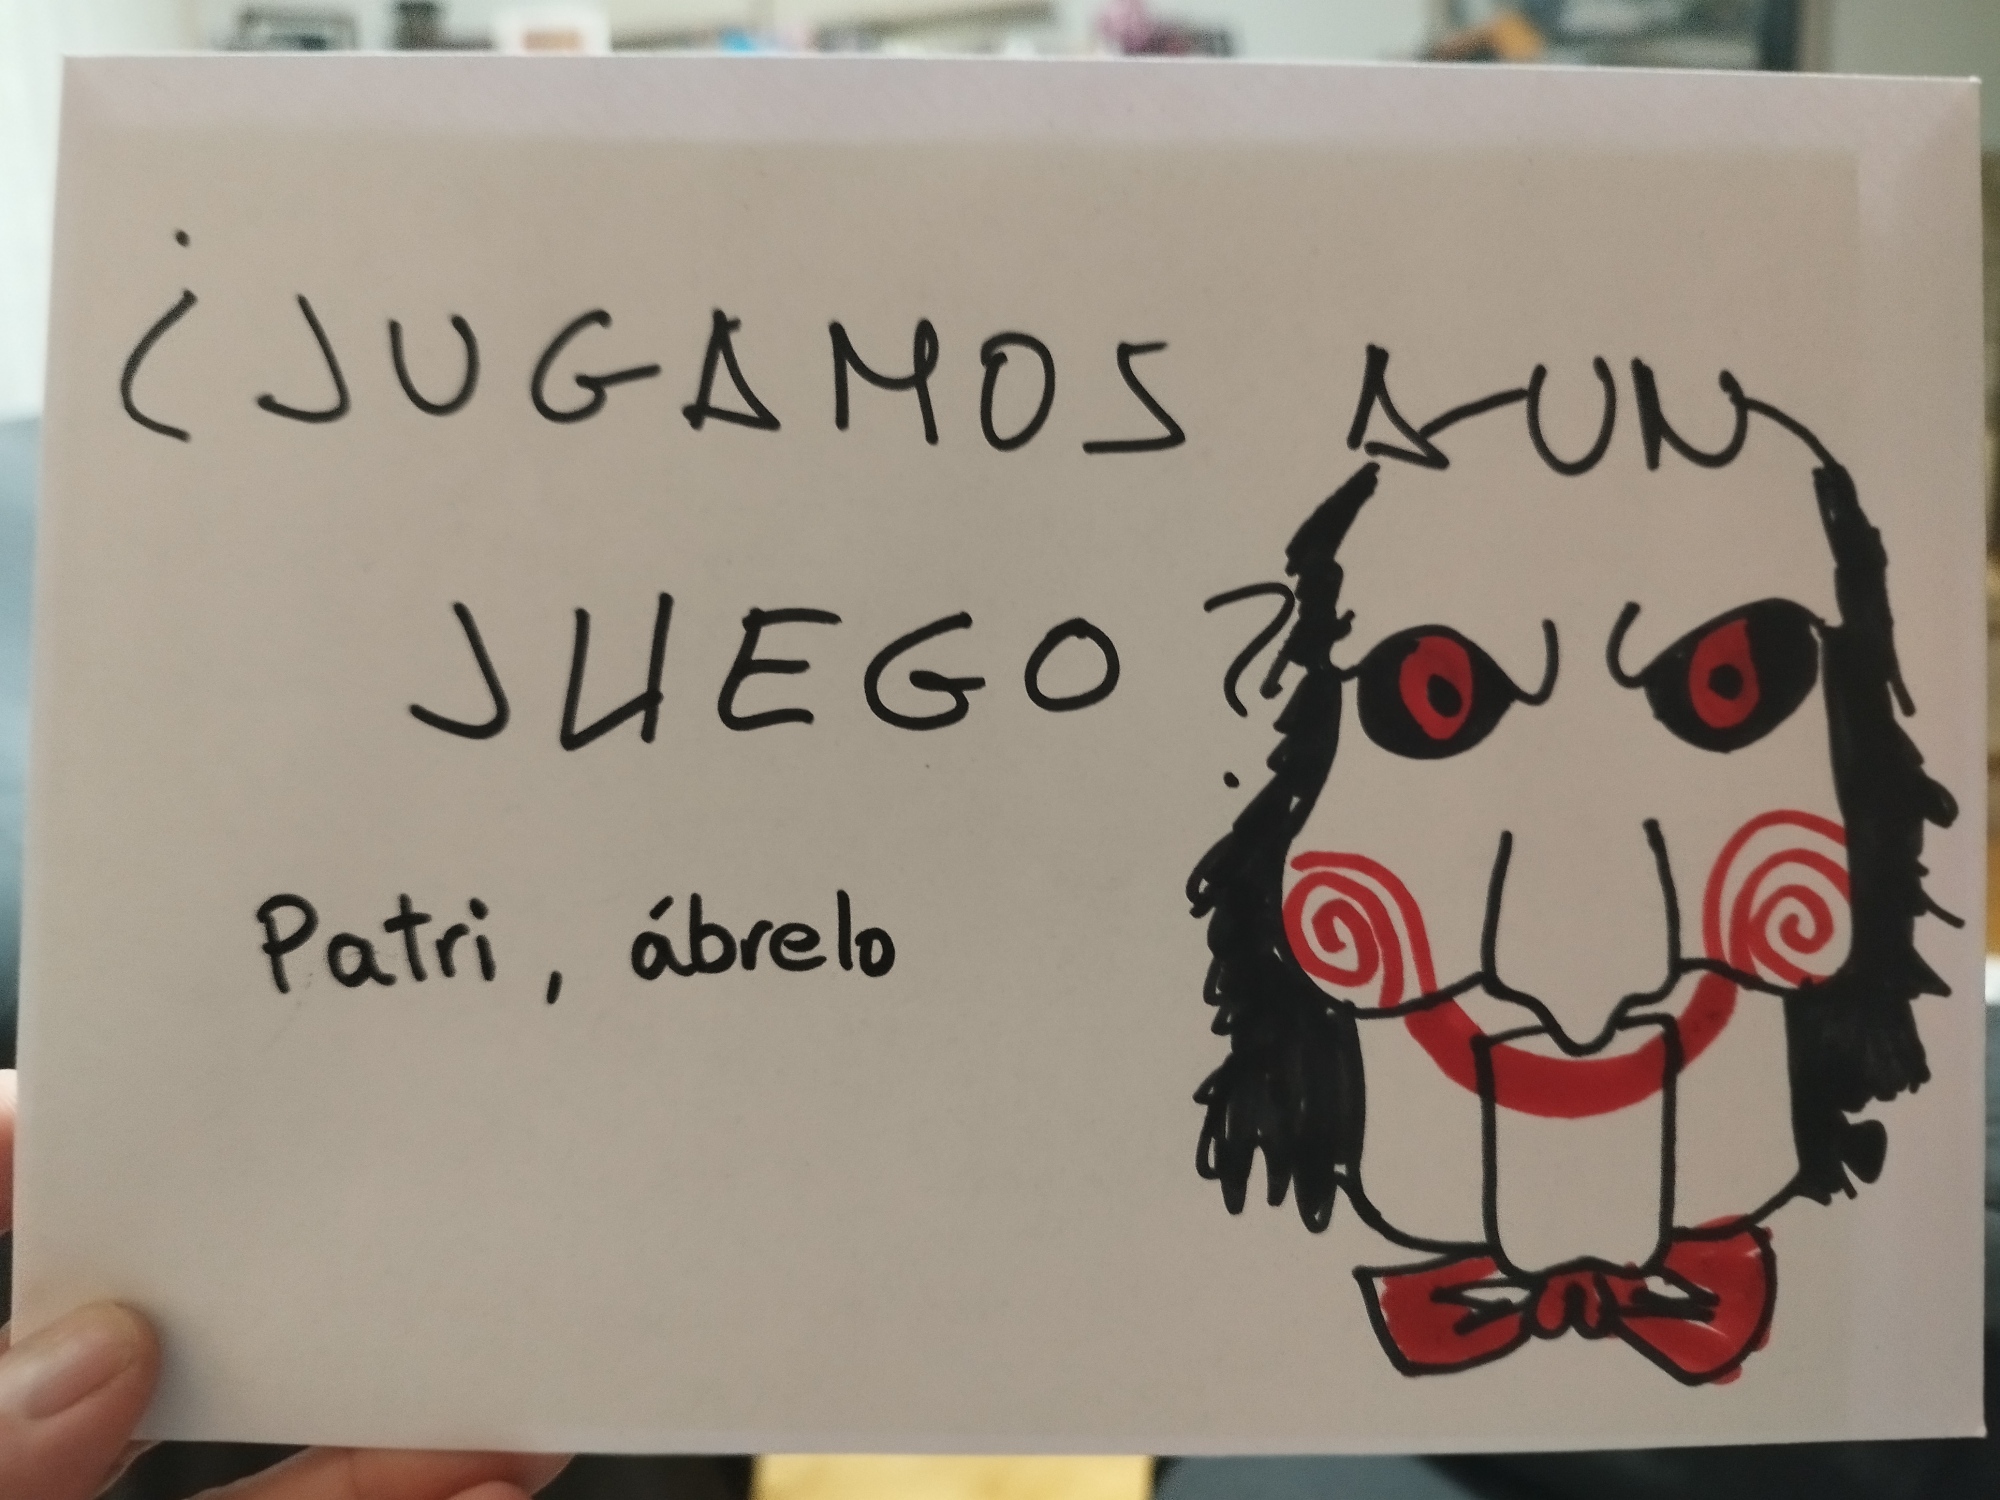 ¿JUGAMOS A UN
JUEGO?
Patri, ábrelo